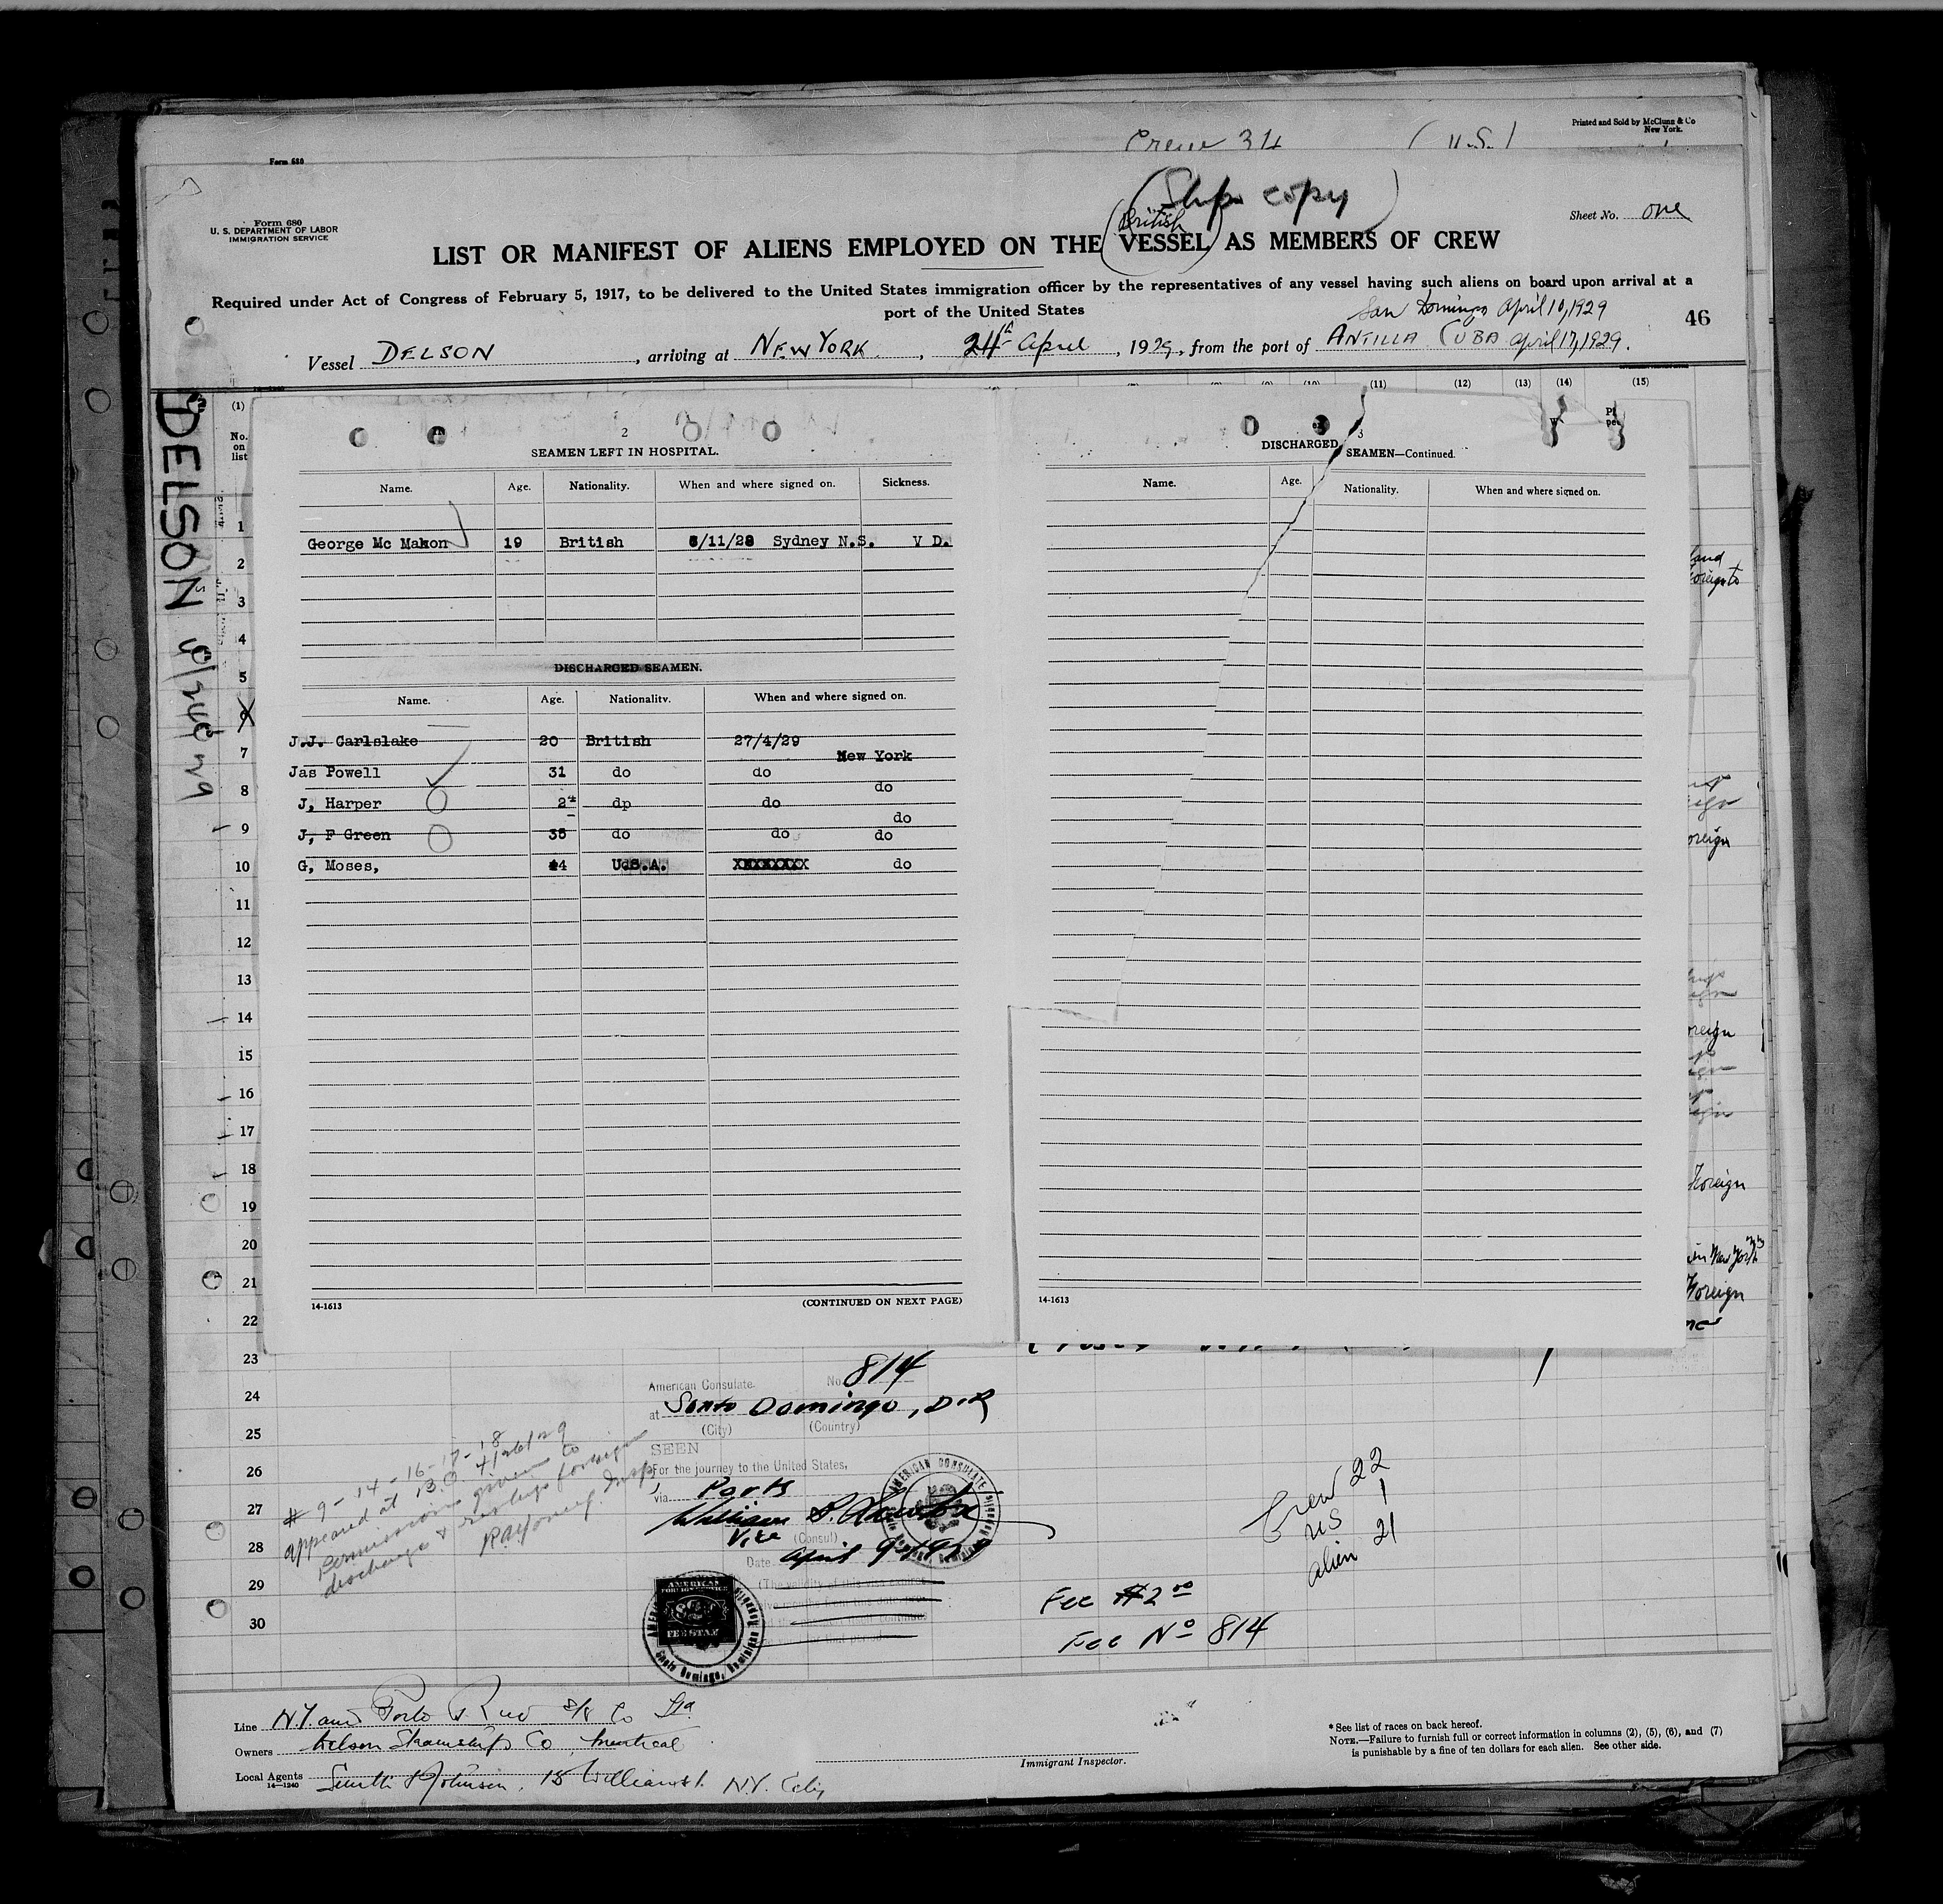 Printed and Sold by McClunn & Co
New York.
Crew 34 (U.S.)
Form 630
(Ship copy)
Form 680
U. S. DEPARTMENT OF LABOR
IMMIGRATION SERVICE
Sheet No. one
(British)
LIST OR MANIFEST OF ALIENS EMPLOYED ON THE VESSEL AS MEMBERS OF CREW
Required under Act of Congress of February 5, 1917, to be delivered to the United States immigration officer by the representatives of any vessel having such aliens on board upon arrival at a
port of the United States
San Domingo April 10, 1929
46
Vessel DELSON, arriving at NEW YORK, 24th April, 1929, from the port of ANTILLA CUBA April 17, 1929.
(1) (11) (12) (13) (14) (15)
No.
on
list
DELSON
2
SEAMEN LEFT IN HOSPITAL.
Name. Age. Nationality. When and where signed on. Sickness.
George Mc Mahon 19 British 6/11/28 Sydney N.S. V D.
DISCHARGED SEAMEN.
Name. Age. Nationality. When and where signed on.
J.J. Carlslake 20 British 27/4/29
New York
Jas Powell 31 do do
do
J, Harper 24 dp do
do
J, F Green 35 do do do
G, Moses, 44 U.S.A. XXXXXXXX do
14-1613 (CONTINUED ON NEXT PAGE)
3
DISCHARGED SEAMEN—Continued.
Name. Age. Nationality. When and where signed on.
14-1613
1
2
3
4
5
6
7
8
9
10
11
12
13
14
15
16
17
18
19
20
21
22
23
24
25
26
27
28
29
30
foreign
Foreign
in New York
Foreign
American Consulate. No. 814
at Santo Domingo, D.R
(City) (Country)
SEEN
For the journey to the United States,
via Ports
William
Vice (Consul)
Date April 9th 1929
# 9-14-16-17-18
appeared at B.O. 4/26/29
Permission given to
discharge & reship foreign
Insp
AMERICAN CONSULATE
AMERICAN
FOREIGN SERVICE
FEE STAMP
Santo Domingo, Dominican Republic
Crew 22
US 1
alien 21
Fee $2.00
Fee No 814
Line N.Y. and Porto Rico S/S Co
Owners Delson Steamships Co, Montreal
Local Agents Smith & Johnson, 15 William St. N.Y. City
14—1240
Immigrant Inspector.
* See list of races on back hereof.
NOTE.—Failure to furnish full or correct information in columns (2), (5), (6), and (7)
is punishable by a fine of ten dollars for each alien. See other side.